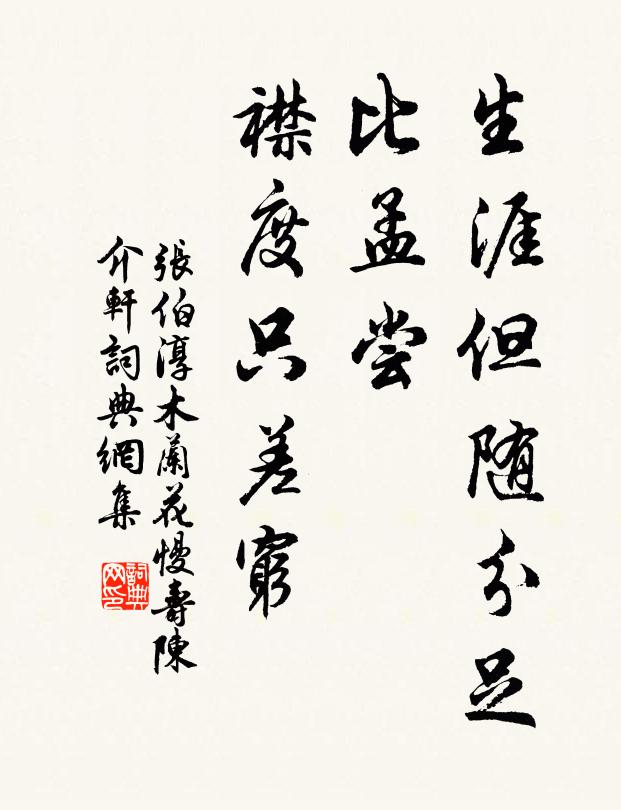 生涯但随分足
比孟尝
襟度只差窮
張伯淳木蘭花慢壽陳
介軒詞典網集
詞典网印